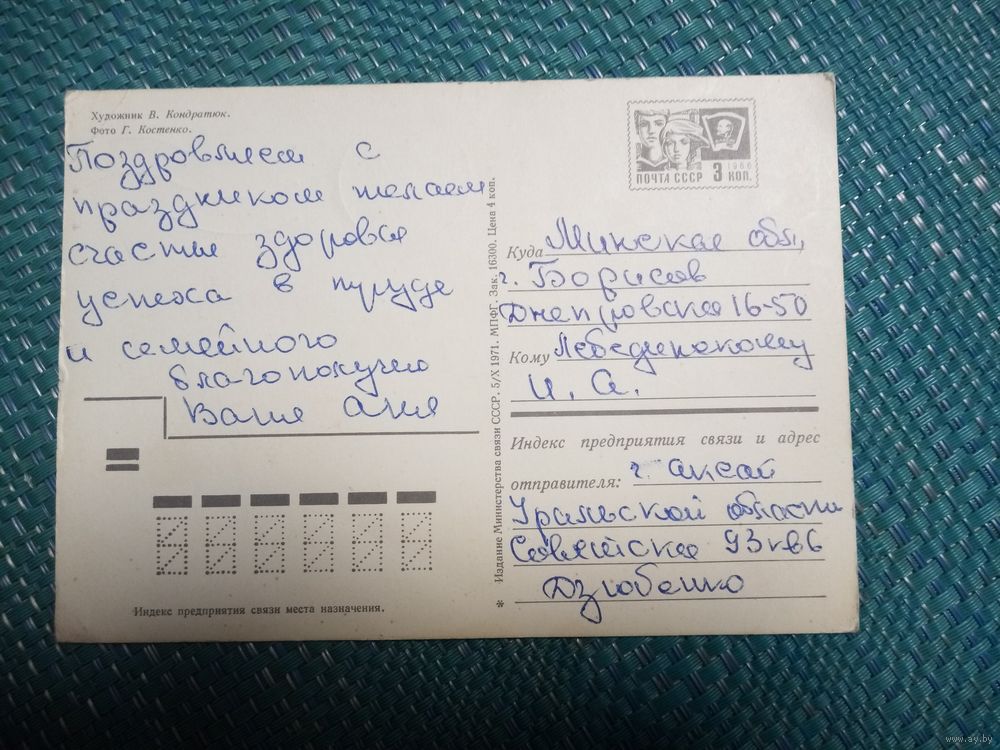 Художник В. Кондратюк.
Фото Г. Костенко.
Поздровляем с
праздником желаем
счастье здоровья
успеха в труде
и семейного
благополучею
Ваша Аня
Индекс предприятия связи места назначения.
* Издание Министерства связи СССР. 5/X 1971. МПФГ. Зак. 16300. Цена 4 коп.
1966
ПОЧТА СССР 3 КОП.
Куда Минская обл,
г. Борисов
Днепровская 16-50
Кому Лебединскому
И. А.
Индекс предприятия связи и адрес
отправителя: г. Аксай
Уральской области
Советская 93 кв 6
Дзюбенко
www.ay.by